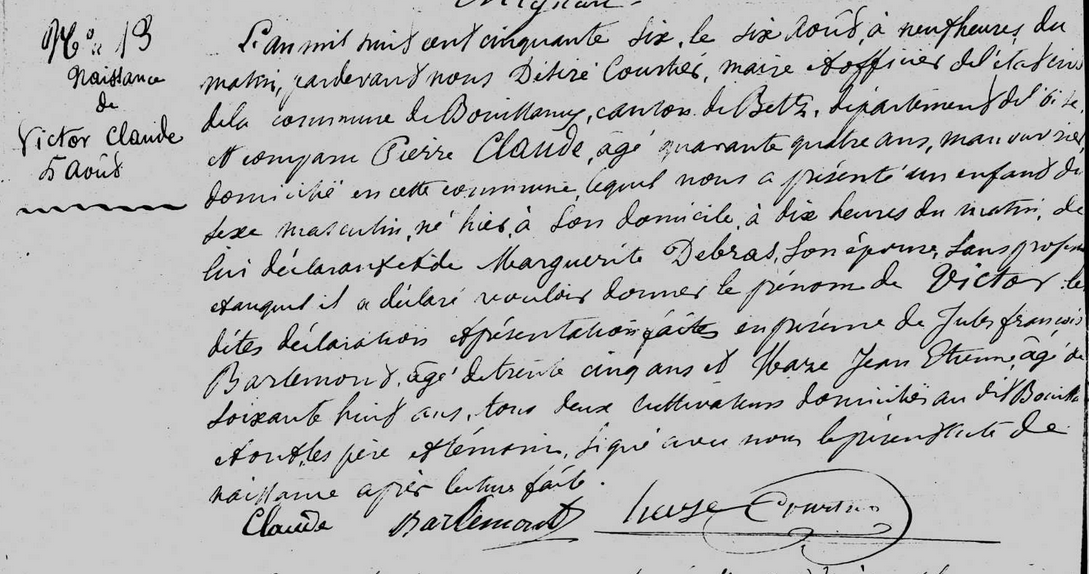 N° 13
Naissance
de
Victor Claude
5 Août
L'an mil huit cent cinquante six, le six Août, à neuf heures du
matin, pardevant nous Désiré Courtier, maire et officier de l'état civil
de la commune de Bouillancy, canton de Betz, département de l'Oise
et comparu Pierre Claude, âgé quarante quatre ans, manouvrier,
domicilié en cette commune, lequel nous a présenté un enfant du
sexe masculin, né hier, à son domicile, à dix heures du matin, de
lui déclarant et de Marguerite Debras, son épouse, sans profession
et auquel il a déclaré vouloir donner le prénom de Victor. les
dites déclaration et présentation faites en présence de Jules françois
Barlemont, âgé de trente cinq ans et Jean Etienne, âgé de
soixante huit ans, tous deux cultivateurs domiciliés au dit Bouillancy
et ont, les père et témoins, signé avec nous le présent acte de
naissance après lecture faite.
Claude Barlemont